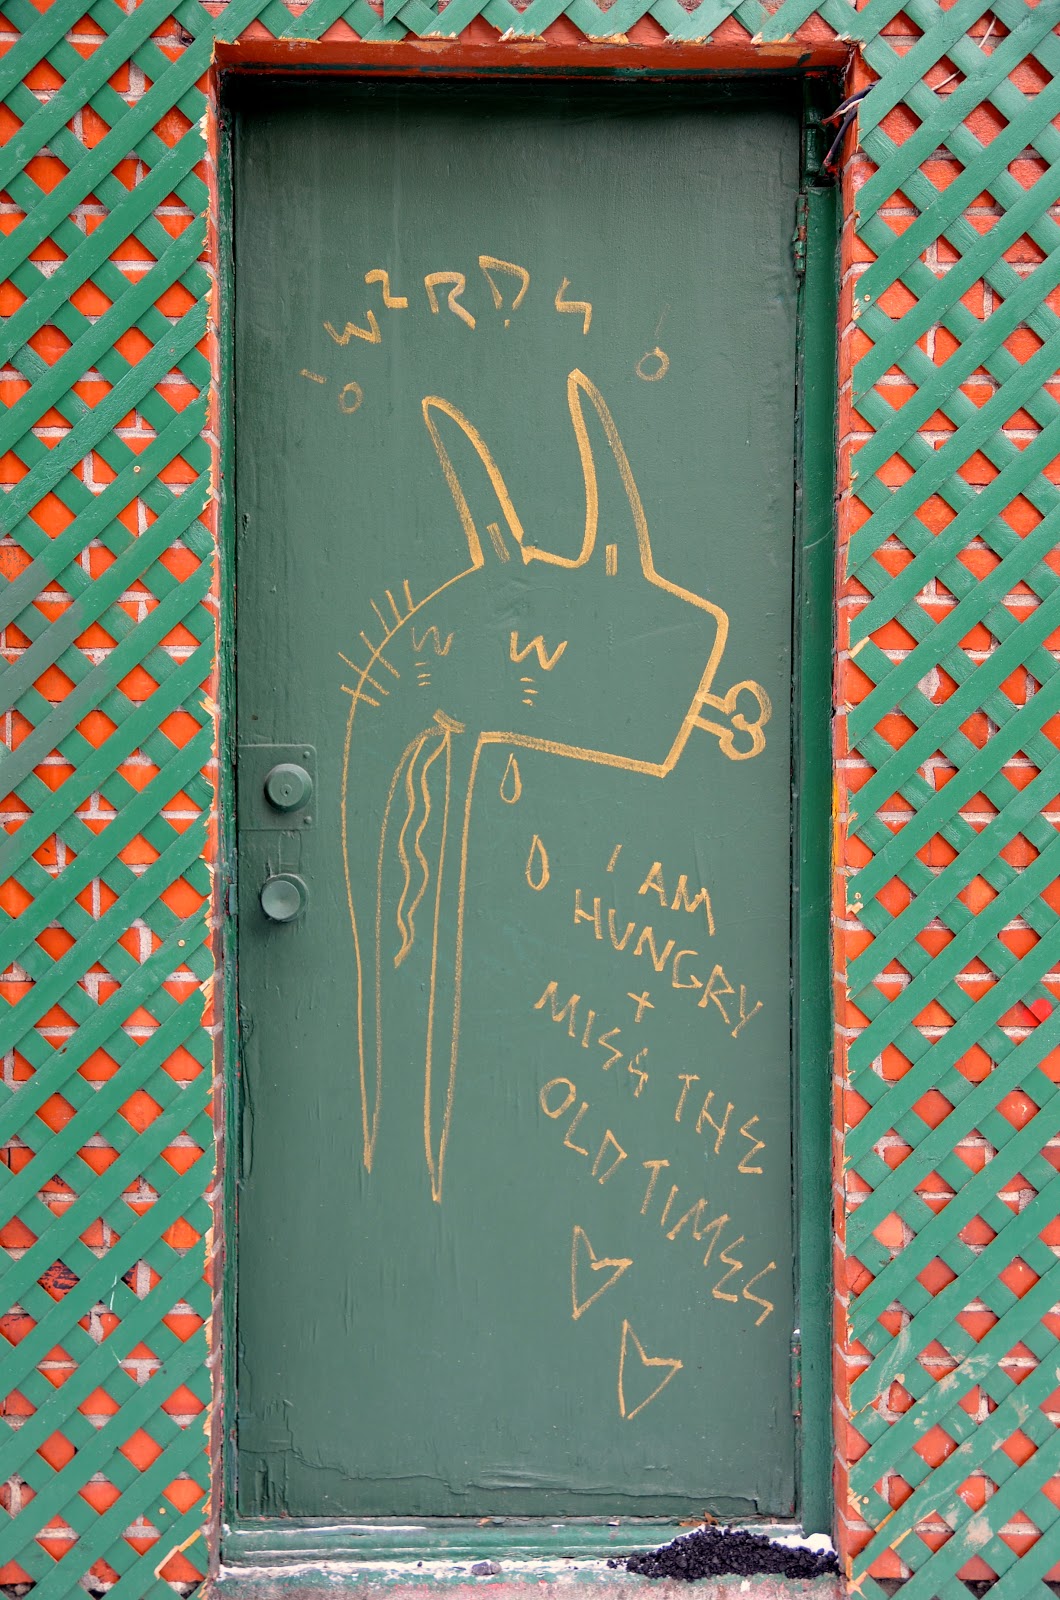 W2RDS
W W
I AM
HUNGRY
+
MISS THE
OLD TIMES